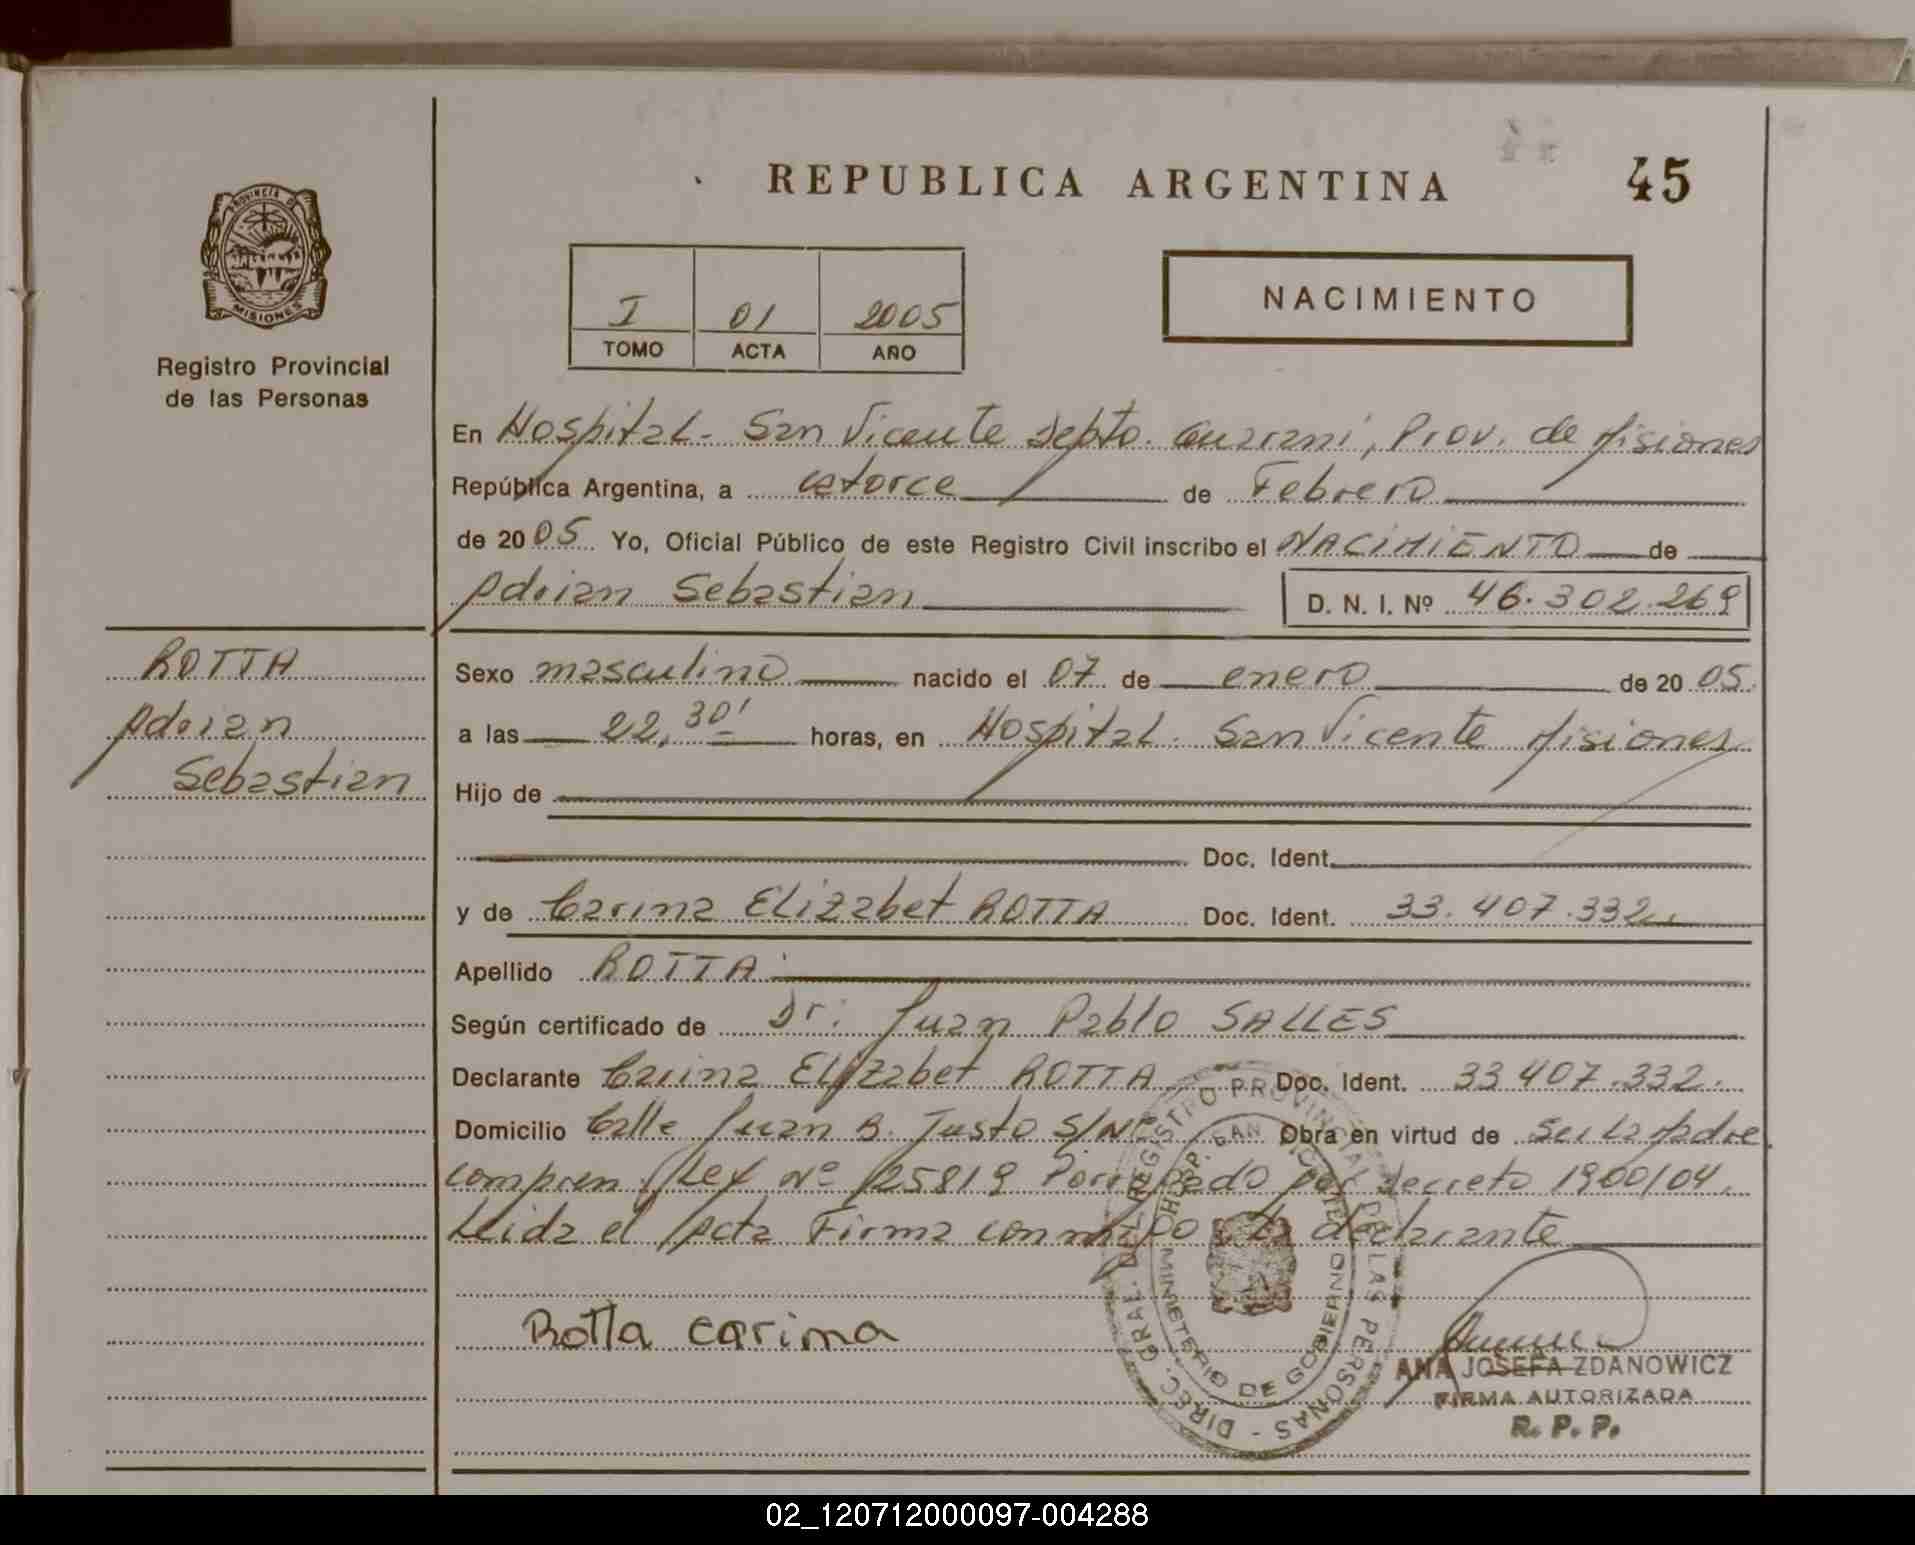 REPUBLICA ARGENTINA
45
PROVINCIA DE
MISIONES
Registro Provincial
de las Personas
I 01 2005
TOMO ACTA AÑO
NACIMIENTO
En Hospital - San Vicente Depto. Guarani, Prov. de Misiones
República Argentina, a catorce de Febrero
de 2005 Yo, Oficial Público de este Registro Civil inscribo el NACIMIENTO de
Adrian Sebastian D. N. I. Nº 46.302.269
ROTTA
Adrian
Sebastian
Sexo masculino nacido el 07 de enero de 2005.
a las 22,30' horas, en Hospital. San Vicente Misiones
Hijo de
Doc. Ident.
y de Carina Elizabet ROTTA Doc. Ident. 33.407.332.
Apellido ROTTA
Según certificado de Dr. Juan Pablo SALLES
Declarante Carina Elizabet ROTTA Doc. Ident. 33 407.332.
Domicilio Calle Juan B. Justo S/Nº Obra en virtud de ser La Madre
compren. Ley Nº 25819 por decreto 1900/04.
Leida el Acta Firma conmigo La declarante
Rotta carina
DIREC. GRAL. DEL REGISTRO PROVINCIAL DE LAS PERSONAS -
HOSP. SAN VICENTE
MINISTERIO DE GOBIERNO
ANA JOSEFA ZDANOWICZ
FIRMA AUTORIZADA
R. P. P.
02_120712000097-004288